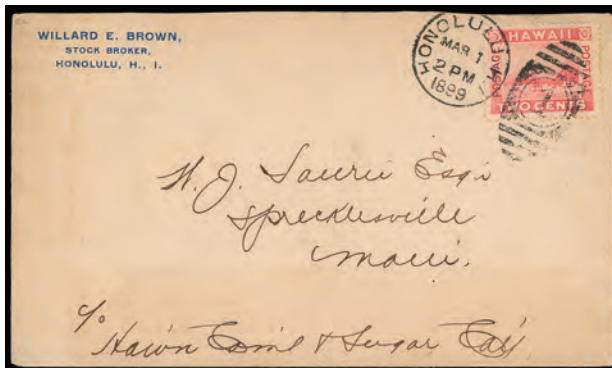 WILLARD E. BROWN,
STOCK BROKER,
HONOLULU, H., I.
HONOLULU H.I.
MAR 1
2 PM
1899
HAWAII
POSTAGE POSTAGE
TWO CENTS
W. J. Lowrie Esqr
Spreckelsville
Maui.
c/o
Hawn Coml & Sugar Coy.